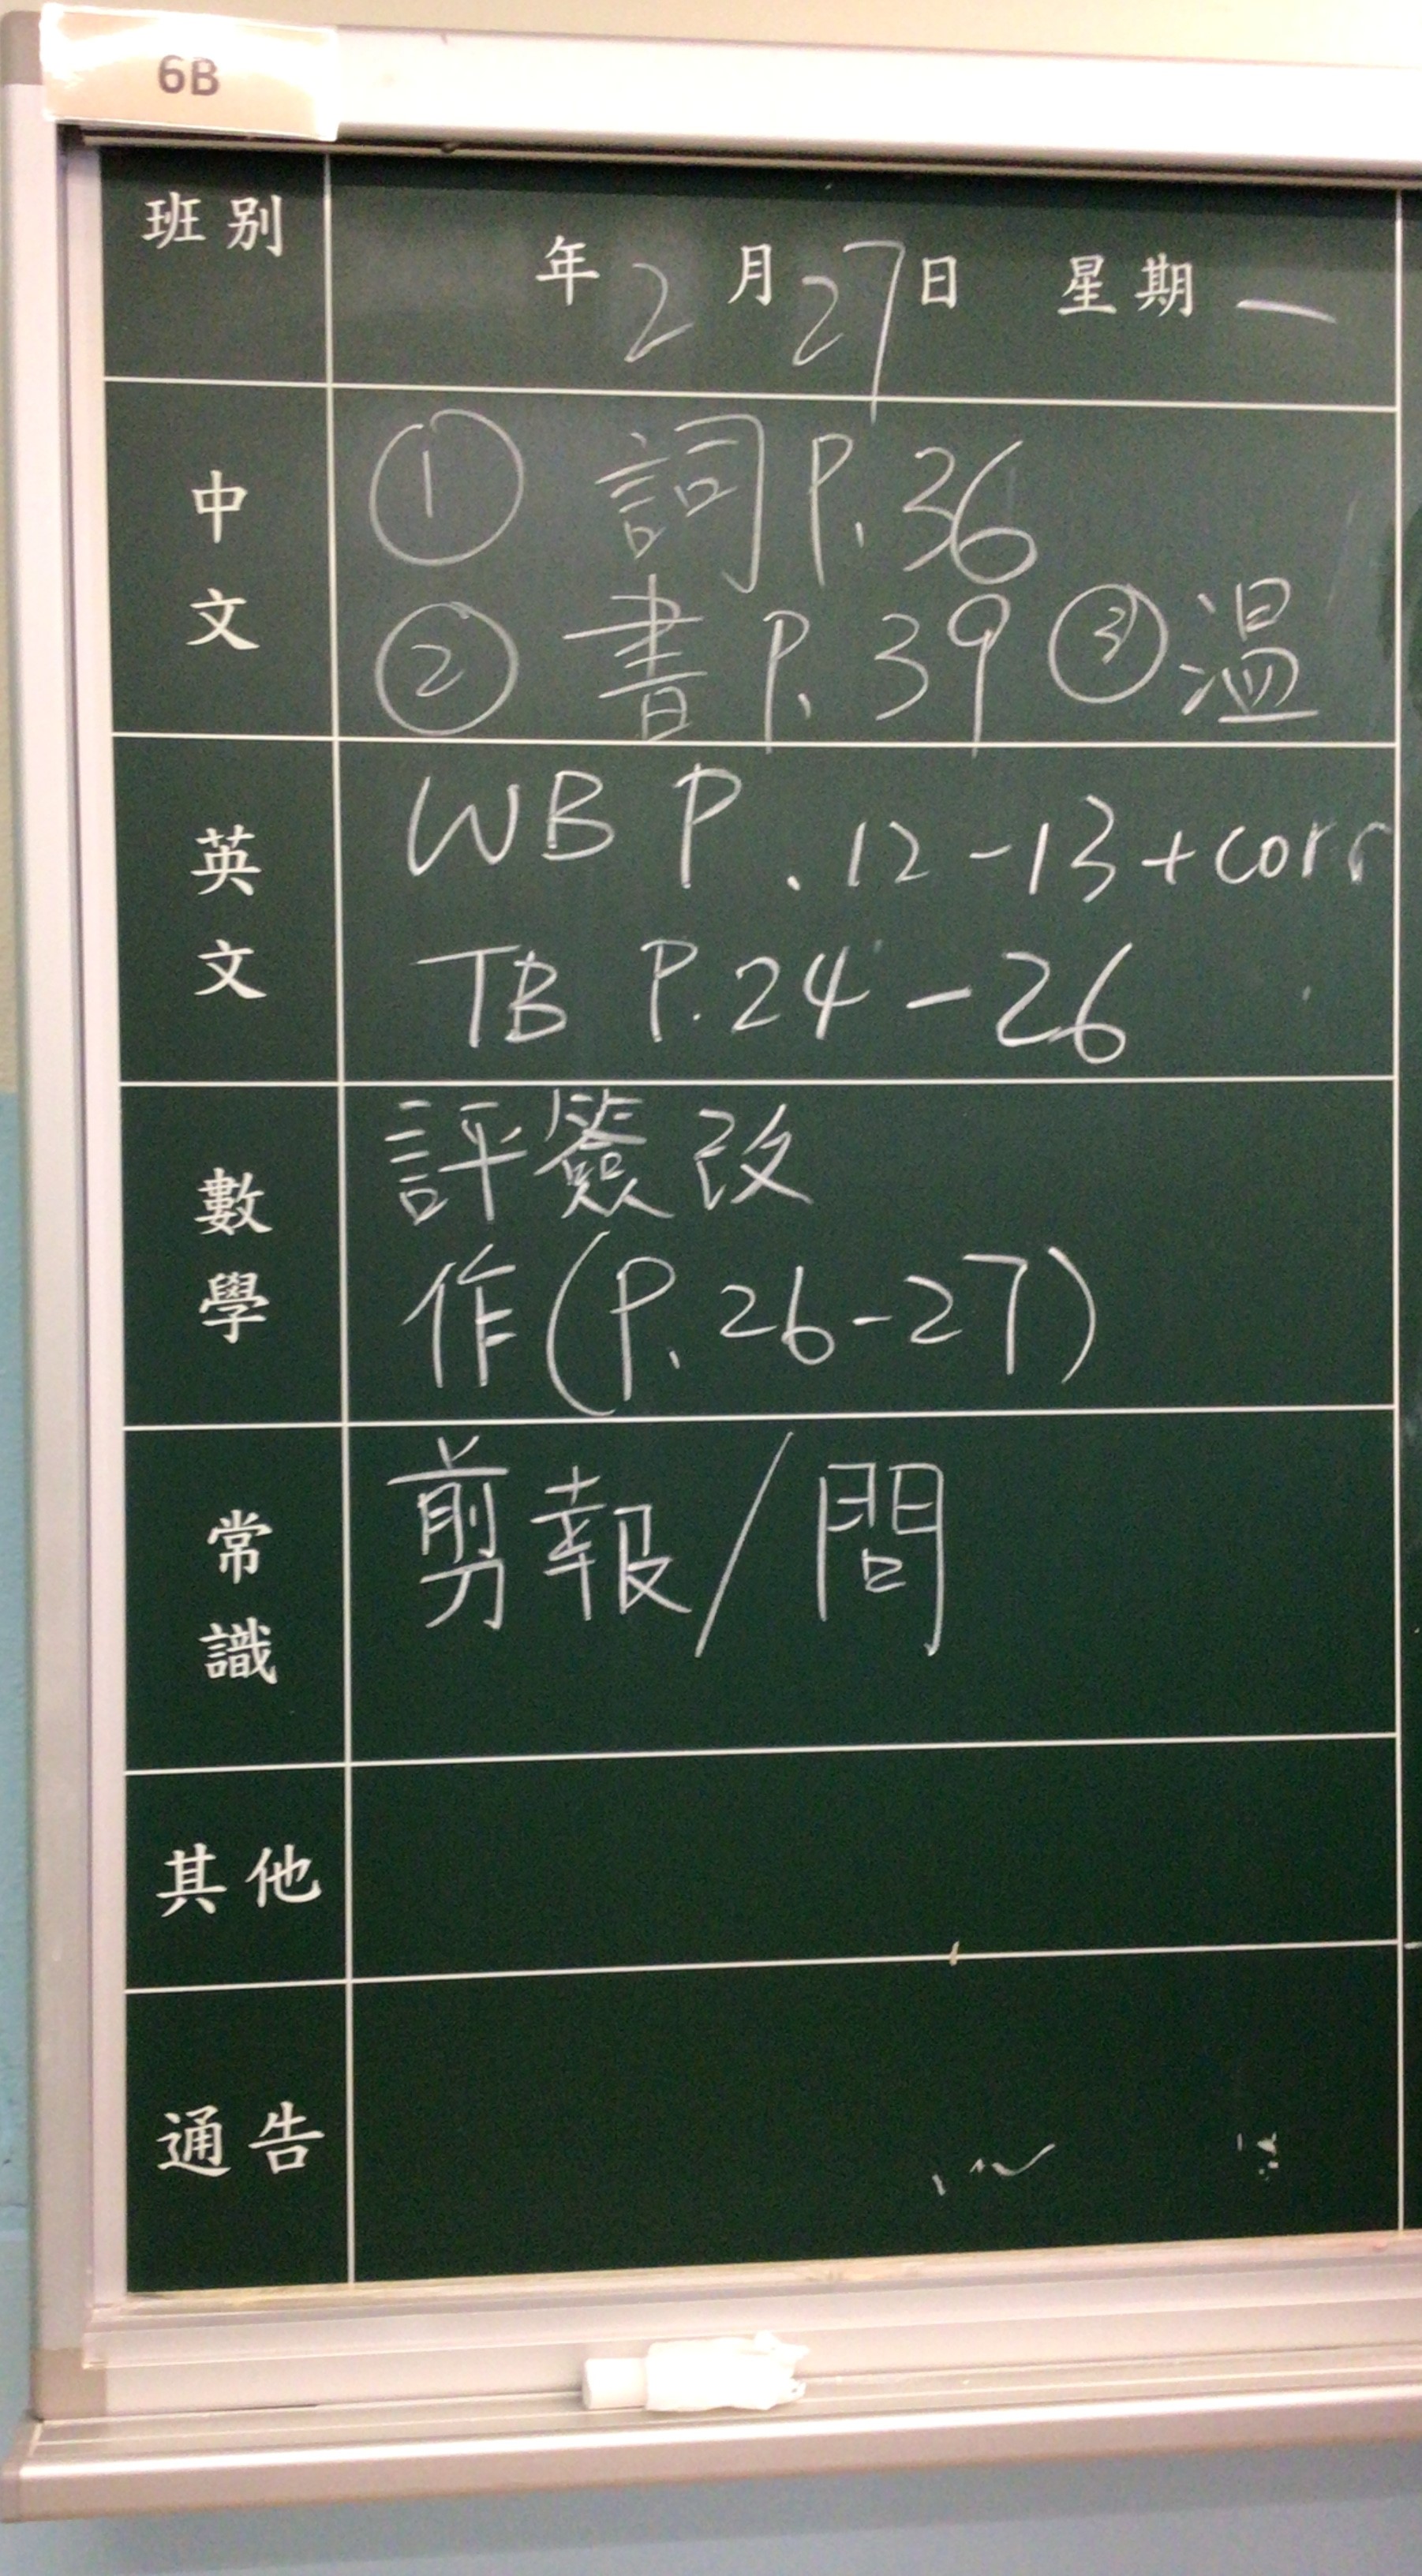 6B
班別
年 2 月 27 日 星期 一
中文
① 詞 P.36
② 書 P.39 ③ 溫
英文
WB P.12-13+corr
TB P.24-26
數學
評簽改
作(P.26-27)
常識
剪報/問
其他
通告